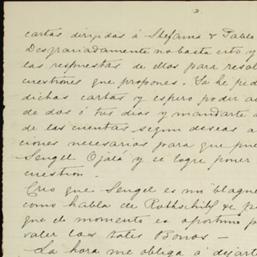 cartas dirigidas á Stefano & Pablo
Desgraciadamente no basta esto y
las respuestas de ellos para resol
cuestiones que propones. Ya he ped
dichas cartas y espero poder
de dos ó tres dias y mandarte a
de las cuentas segun deseas
ciones necesarias para que pue
Sengel Ojalá y se logre poner
cuestión.
Creo que Sengel es un blague
como habla de Rothschild &
que de momento es oportuno
valer los Bonos —
La hora me obliga á dejart